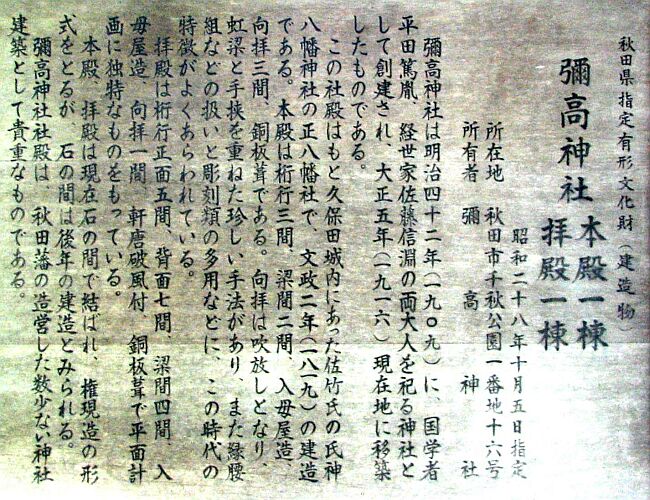 秋田県指定有形文化財（建造物）
彌高神社 本殿一棟
拝殿一棟
昭和二十八年十月五日指定
所在地 秋田市千秋公園一番地十六号
所有者 彌高神社
彌高神社は明治四十二年（一九〇九）に、国学者
平田篤胤、経世家佐藤信淵の両大人を祀る神社と
して創建され、大正五年（一九一六）現在地に移築
したものである。
この社殿はもと久保田城内にあった佐竹氏の氏神
八幡神社の正八幡社で、文政二年（一八一九）の建造
である。本殿は桁行三間、梁間二間、入母屋造、
向拝三間、銅板葺である。向拝は吹放しとなり、
虹梁と手挟を重ねた珍しい手法があり、また縁腰
組などの扱いと彫刻類の多用などに、この時代の
特徴がよくあらわれている。
拝殿は桁行正面五間、背面七間、梁間四間 入
母屋造、向拝一間 軒唐破風付 銅板葺で平面計
画に独特なものをもっている。
本殿、拝殿は現在石の間で結ばれ、権現造の形
式をとるが 石の間は後年の建造とみられる。
彌高神社社殿は、秋田藩の造営した数少ない神社
建築として貴重なものである。